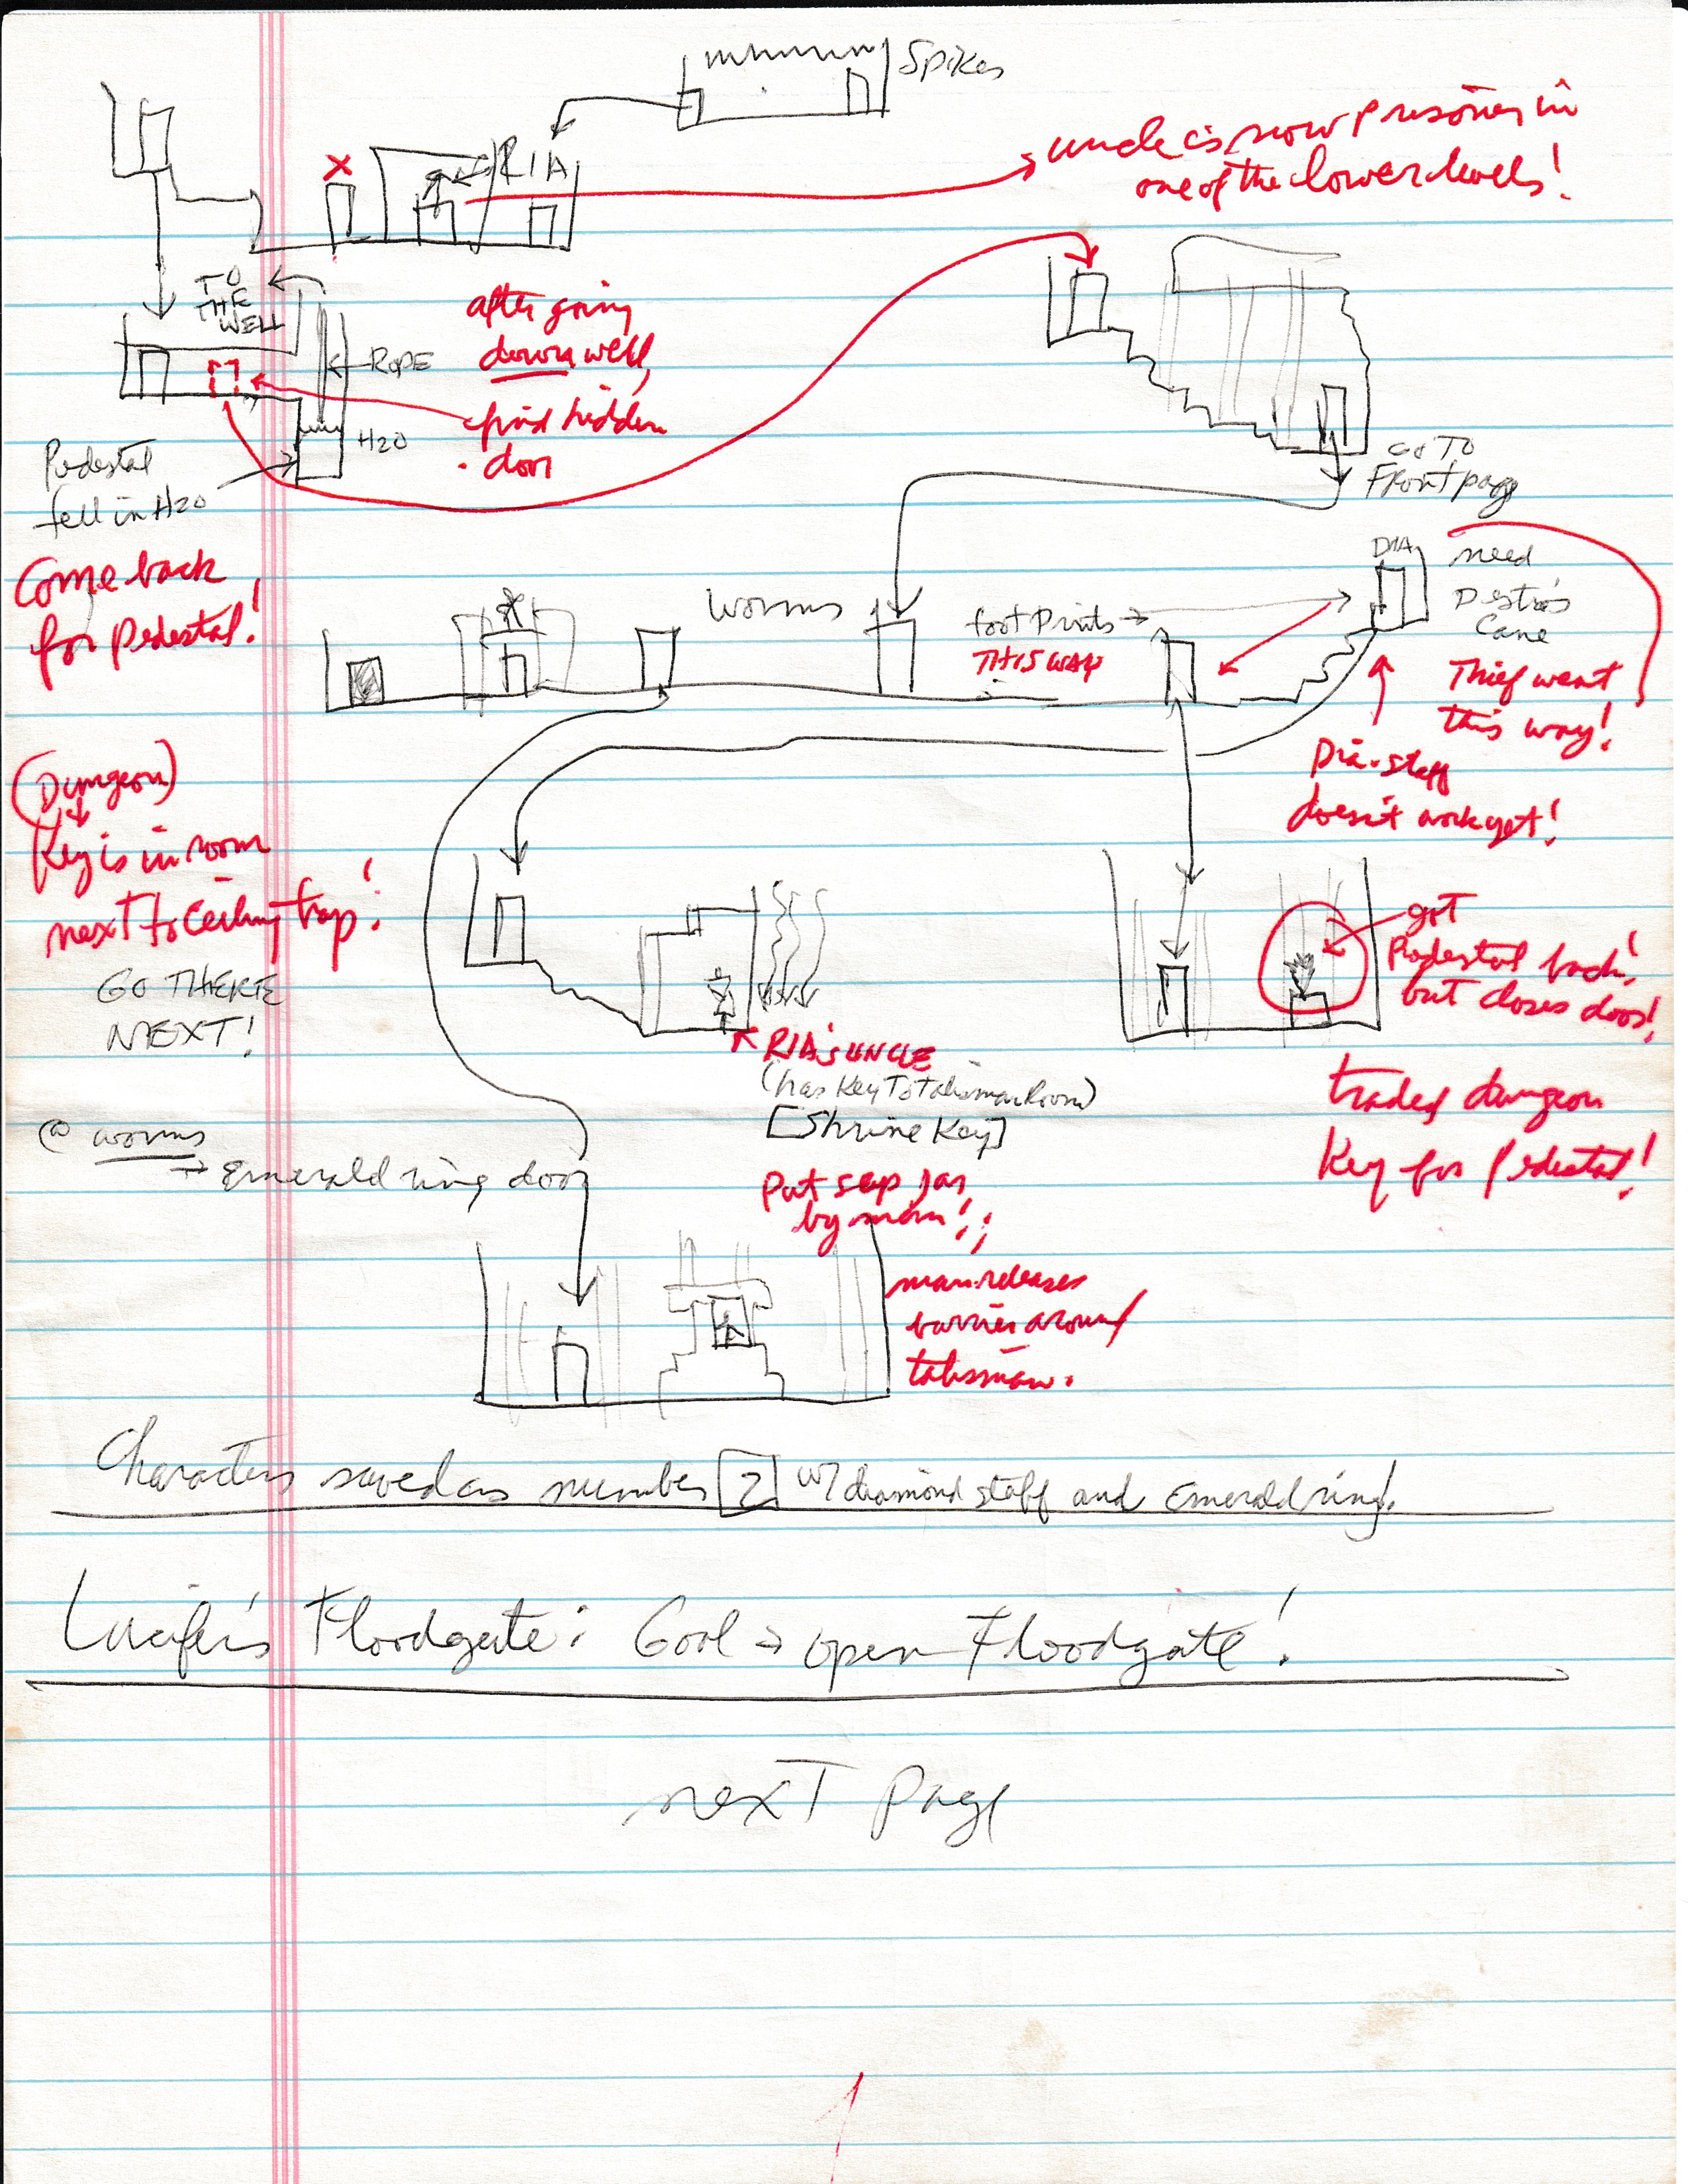 Spikes
RIA
X
uncle is now prisoner in
one of the lower levels!
TO
THE
WELL
ROPE
H2O
Pedestal
fell in H2O
after going
down well,
find hidden
door
GO TO
Front page
Come back
for pedestal!
worms
footprints →
THIS WAY
DIA
need
Cane
Thief went
this way!
Dia-staff
doesn't work yet!
(Dungeon)
Key is in room
next to Ceiling trap!
GO THERE
NEXT!
got
Pedestal back!
but closes door!
traded dungeon
Key for pedestal!
RIA'S UNCLE
(has Key To talisman Room)
[Shrine Key]
@ worms
→ Emerald ring door
Put sap jar
by man!
man releases
barrier around
talisman.
Character saved as number 2 w/ diamond staff and Emerald ring!
Lucifer's Floodgate: Goal → open Floodgate!
next page
1